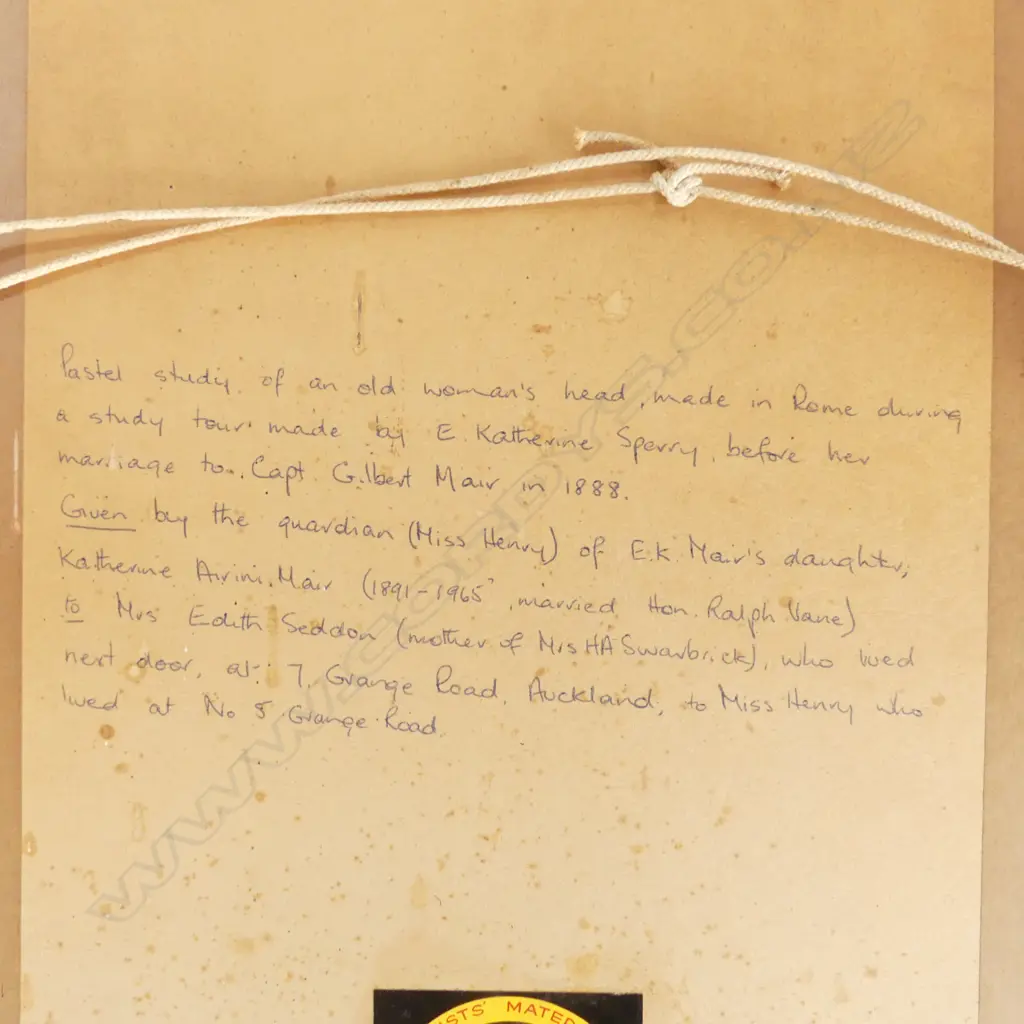 Pastel study of an old woman's head, made in Rome during
a study tour made by E. Katherine Sperry, before her
marriage to Capt. Gilbert Mair in 1888.
Given by the guardian (Miss Henry) of E.K. Mair's daughter,
Katherine Airini Mair (1891-1965, married Hon. Ralph Vane)
to Mrs Edith Seddon (mother of Mrs HA Swarbrick), who lived
next door, at: 7, Grange Road, Auckland, to Miss Henry who
lived at No 5 Grange Road.